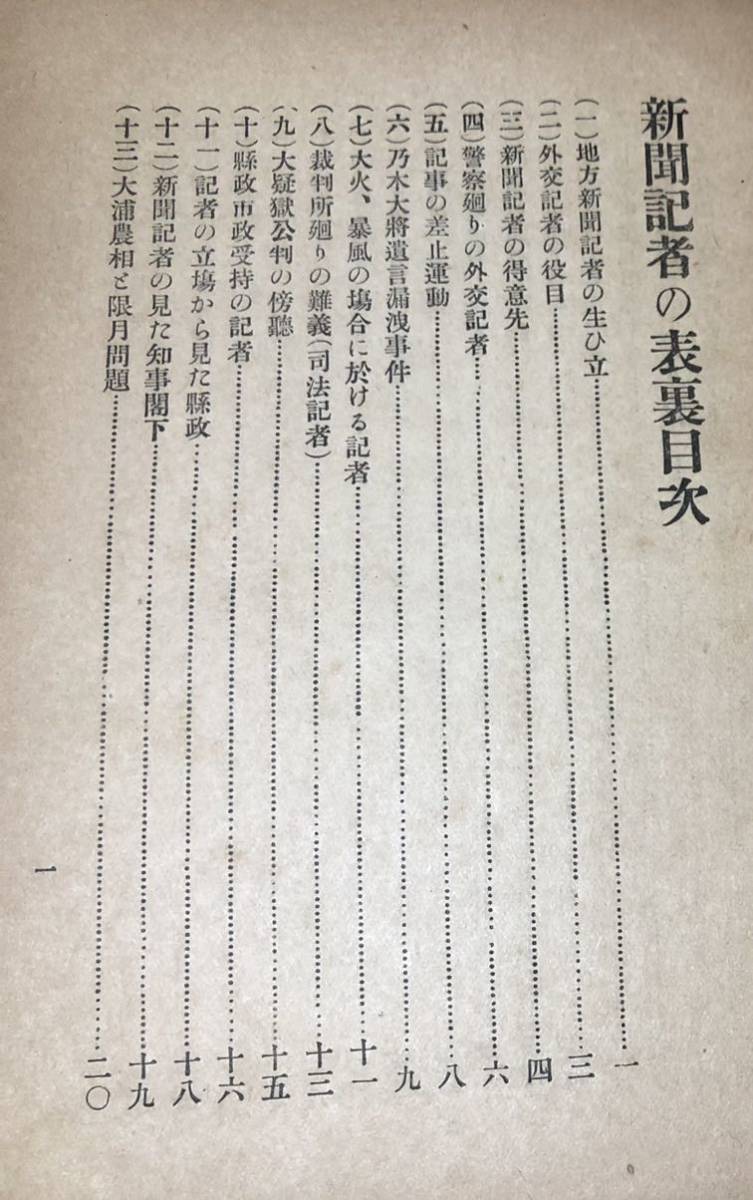 新聞記者の表裏目次
(一)地方新聞記者の生ひ立……一
(二)外交記者の役目……三
(三)新聞記者の得意先……四
(四)警察廻りの外交記者……六
(五)記事の差止運動……八
(六)乃木大將遺言漏洩事件……九
(七)大火、暴風の塲合に於ける記者……十一
(八)裁判所廻りの難義(司法記者)……十三
(九)大疑獄公判の傍聽……十五
(十)縣政市政受持の記者……十六
(十一)記者の立塲から見た縣政……十八
(十二)新聞記者の見た知事閣下……十九
(十三)大浦農相と限月問題……二〇
一